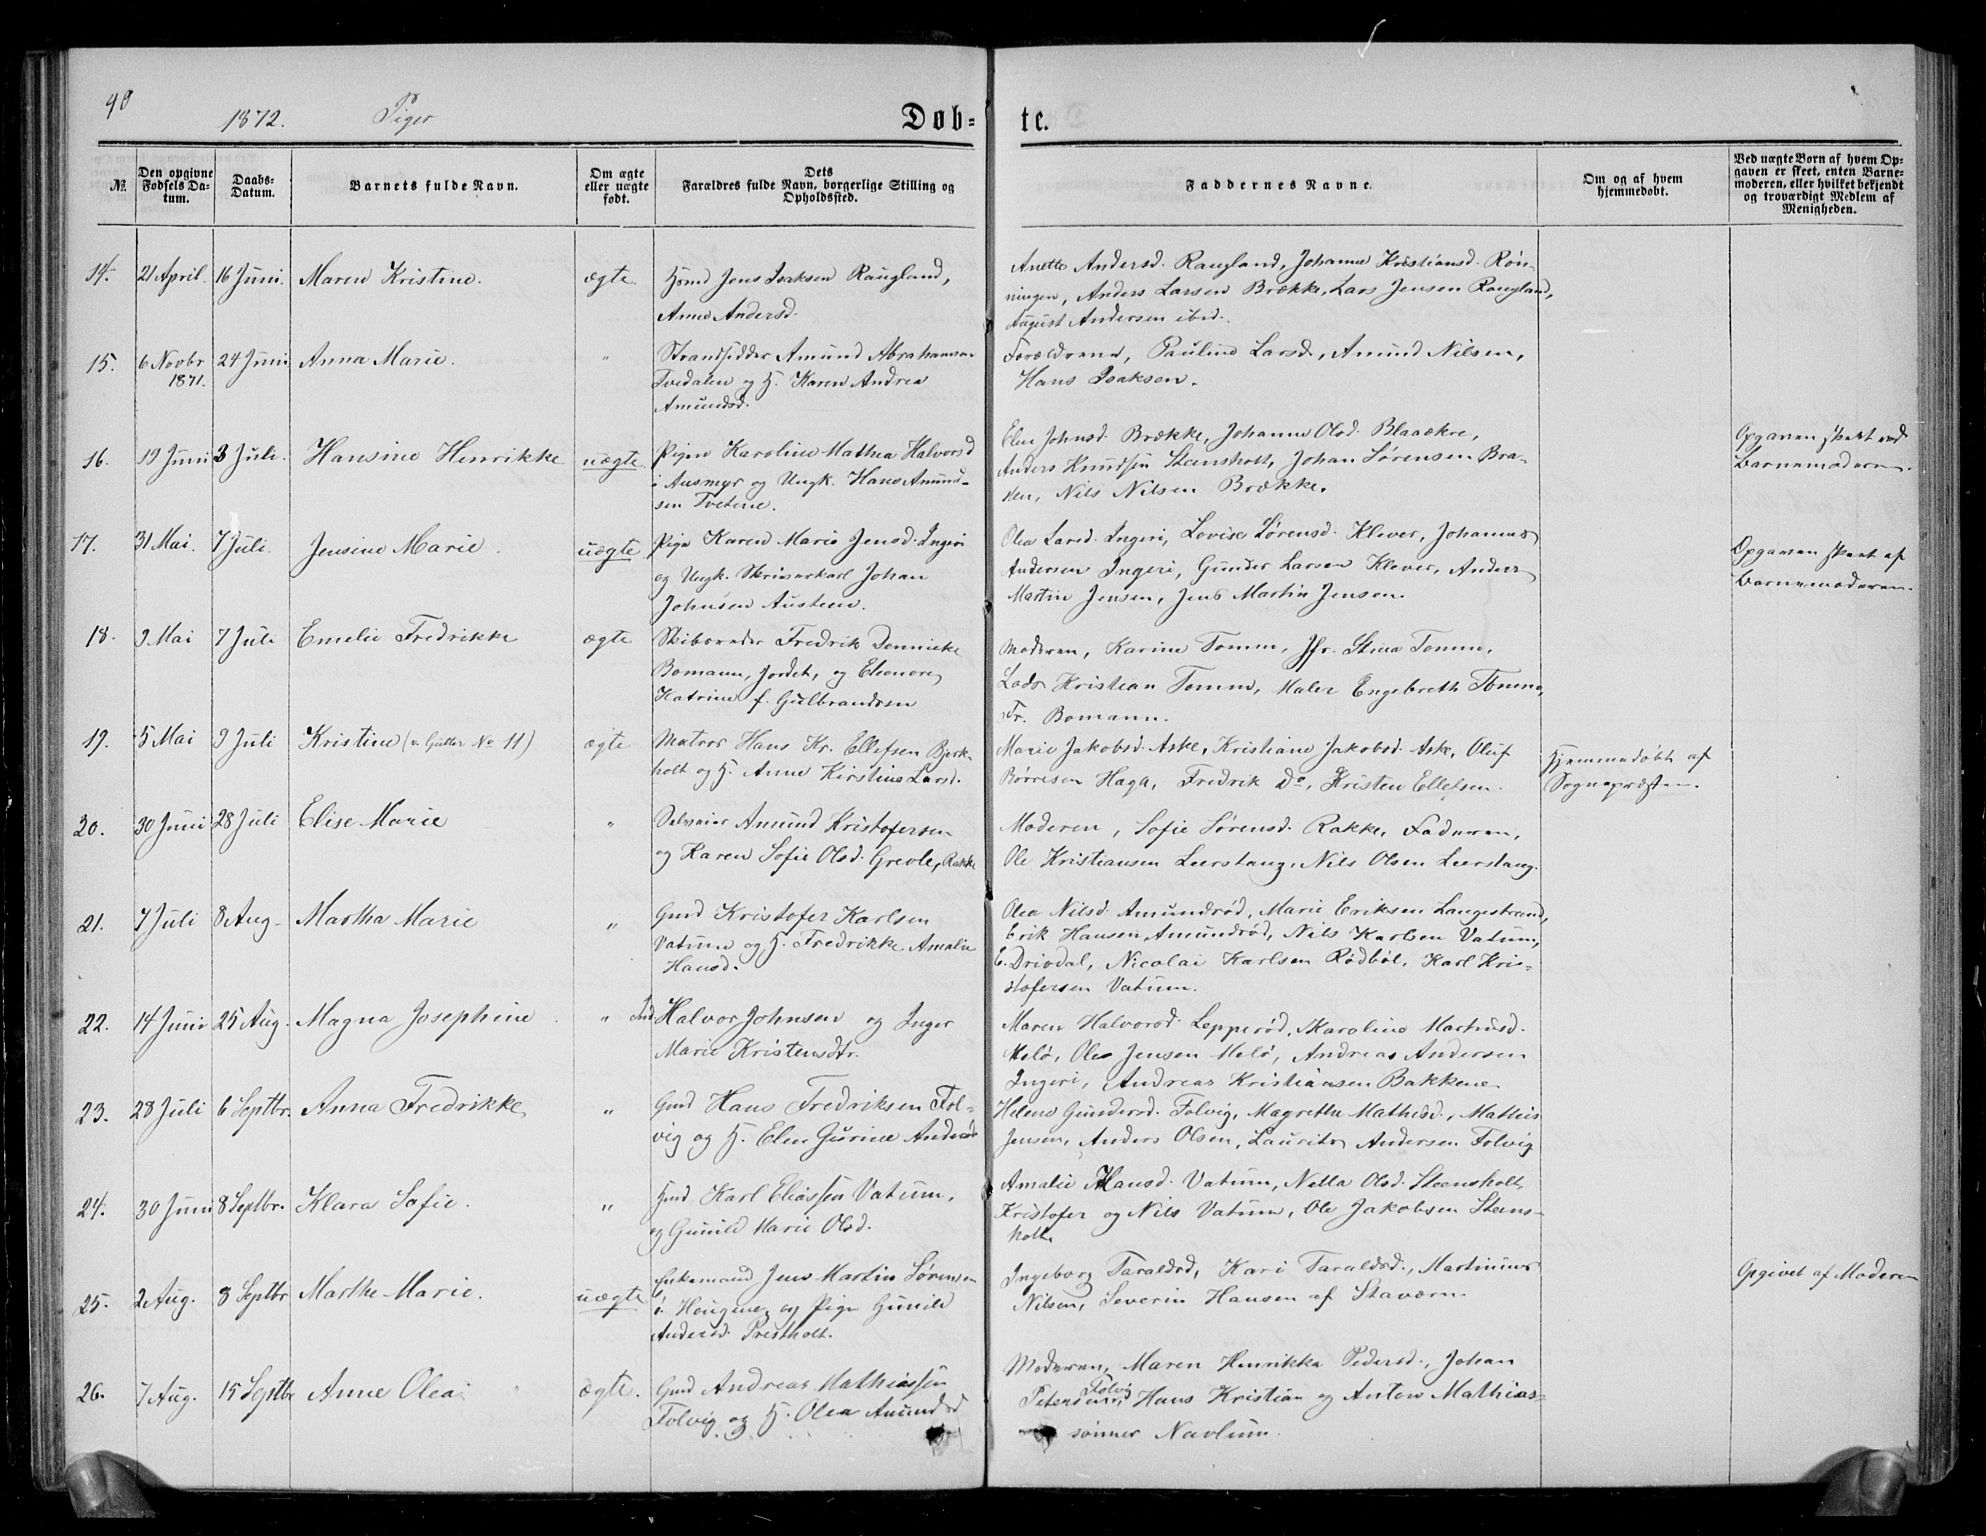 40
1872. Piger
Døb-
te.
№
Den opgivne Fødsels Datum.
Daabs-Datum.
Barnets fulde Navn.
Om ægte eller uægte født.
Dets Forældres fulde Navn, borgerlige Stilling og Opholdssted.
Faddernes Navne.
Om og af hvem hjemmedøbt.
Ved uægte Børn af hvem Opgaven er skeet, enten Barnemoderen, eller hvilket bekjendt og troværdigt Medlem af Menigheden.
14. 21 April. 16 Juni. Maren Kristine. ægte
Jens Isaksen Raugland,
Anne Andersd.
Anette Andersd. Raugland, Johanne Kristiansd. Røn-
ningen, Anders Larsen Brække, Lars Jensen Raugland,
August Andersen ibid.
15. 6 Novbr 1871. 24 Juni Anna Marie. "
Strandsidder Amund Abrahamsen
Tvedalen og H. Karen Andrea
Amundsd.
Forældrene, Pauline Larsd., Amund Nilsen,
Hans Isaksen.
16. 19 Juni 3 Juli. Hansine Henrikke uægte
Pigen Karoline Mathea Halvorsd
i Ausmyr og Ungk. Hans Amund-
sen Tvetene.
Elen Johnsd. Brække, Johanne Olsd. Blaaekre,
Anders Knudsen Steensholt, Johan Sørensen Bra-
ten, Nils Nilsen Brække.
Opgaven skeet ved
Barnemoderen.
17. 31 Mai. 7 Juli. Jensine Marie. uægte
Pige Karen Marie Jensd. Ingeri
og Ungk. Skriverkarl Johan
Johnsen Austeen.
Olea Larsd. Ingeri, Lovise Sørensd. Klever, Johannes
Andersen Ingeri, Gunder Larsen Klever, Anders
Martin Jensen, Jens Martin Jensen.
Opgaven skeet af
Barnemoderen.
18. 9 Mai 7 Juli Emelie Fredrikke ægte
Skibsreder Fredrik Dennicke
Bomann, Jordet, og Eleonore
Katrine f. Gulbrandsen
Moderen, Karine Tomm, Jfr. Stina Tomm,
Lods Kristian Tomm, Maler Engebreth Tomm,
Fr. Bomann.
19. 5 Mai 9 Juli Kristine (v. Gutter No 11) ægte
Matros Hans Kr. Ellefsen Bjerk-
holt og H. Anne Kirstine Larsd.
Marie Jakobsd. Aske, Kristiane Jakobsd. Aske, Oluf
Børresen Haga, Fredrik Do, Kristen Ellefsen.
Hjemmedøbt af
Sognepræsten.
20. 30 Juni 28 Juli Elise Marie "
Selveier Amund Kristofersen
og Karen Sofie Olsd. Grevle, Rakke
Moderen, Sofie Sørensd. Rakke, Faderen,
Ole Kristiansen Leerstang, Nils Olsen Leerstang.
21. 7 Juli 8 Aug. Martha Marie "
Gmd Kristofer Karlsen
Vatum og H. Fredrikke Amalie
Hansd.
Olea Nilsd. Amundrød, Marie Eriksen Langestrand,
Erik Hansen Amundrød, Nils Karlsen Vatum,
E. Drivdal, Nicolai Karlsen Rødbøl, Karl Kris-
stofersen Vatum.
22. 14 Juni 25 Aug. Magna Josephine. "
Ind. Halvor Johnsen og Inger
Marie Kristensdtr.
Maren Halvorsd. Lepperød, Karoline Martinsd.
Melø, Ole Jensen Melø, Andreas Andersen
Ingeri, Andreas Kristiansen Bakkene
23. 28 Juli 6 Septbr. Anna Fredrikke "
Gmd Hans Fredriksen Fol-
vig og H. Elen Gurine Andersd
Helene Gundersd. Folvig, Magrethe Mathisd., Mathis
Jensen, Anders Olsen, Laurits Andersen Folvig
24. 30 Juni 8 Septbr. Klara Sofie. "
Gmd. Karl Eliassen Vatum,
og Gunild Marie Olsd.
Amalie Hansd. Vatum, Nella Olsd. Steensholt,
Kristofer og Nils Vatum, Ole Jakobsen Steens-
holt.
25. 2 Aug. 8 Septbr Marthe Marie. uægte
Enkemand Jens Martin Sørensen
i Haugene og Pige Gunild
Andersd. Prestholt.
Ingeborg Taraldsd, Kari Taraldsd., Martinius
Nilsen, Severin Hansen af Staværn.
Opgivet af Moderen
26. 7 Aug. 15 Septbr Anne Olea ægte.
Gmd Andreas Mathiassen
Folvig og H. Olea Amundsd
Moderen, Maren Henrikka Pedersd., Johan
Petersen Folvig, Hans Kristian og Anton Mathias-
sønner Navlum.